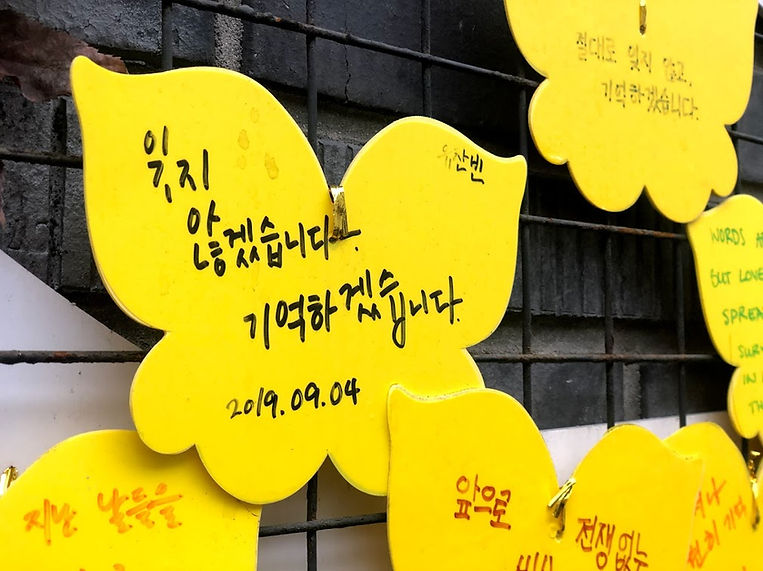 잊지
않겠습니다.
기억하겠습니다.
2019.09.04
유찬빈
절대로 잊지 않고,
기억하겠습니다.
WORDS
BUT LOVE
SPREA
IN
TH
지난 날들을
앞으로
전쟁없는